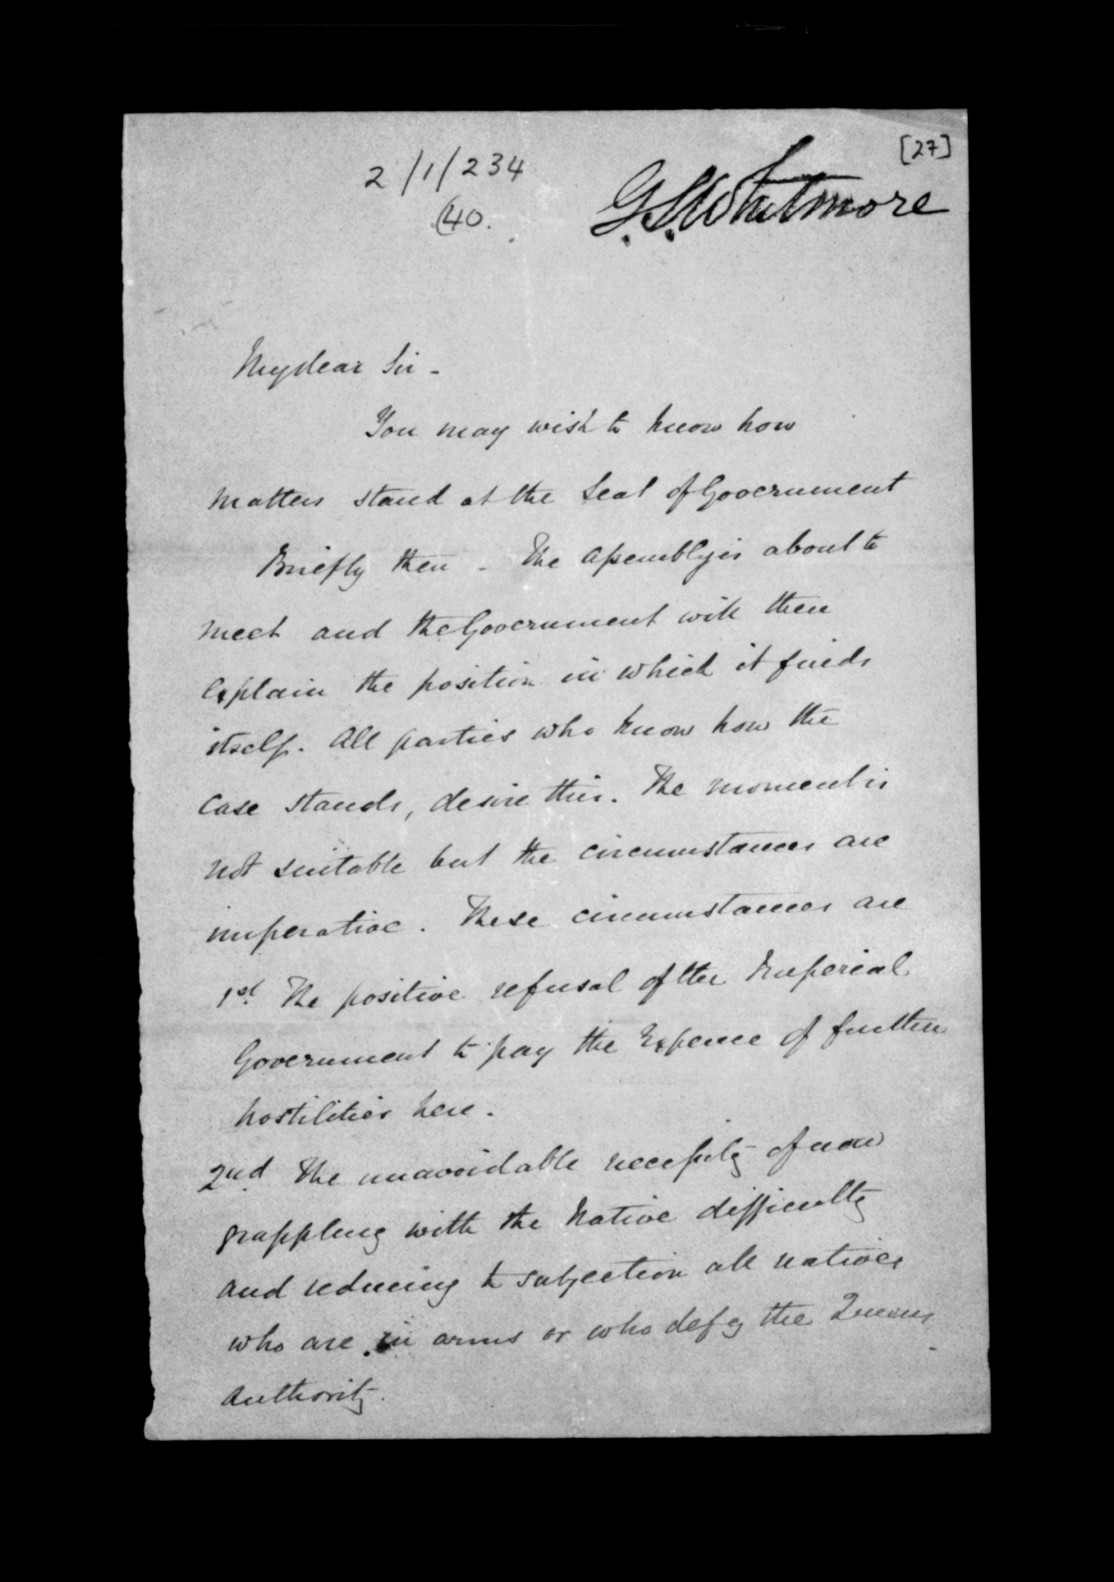 [27]
2/1/234
(40.
G.S. Whitmore
My dear Sir -
You may wish to know how
matters stand at the Seat of Government
Briefly then - The Assembly is about to
meet and the Government will then
explain the position in which it finds
itself. All parties who know how the
case stands, desire this. The moment is
not suitable but the circumstances are
imperative. These circumstances are
1st. The positive refusal of the Imperial
Government to pay the Expence of further
hostilities here.
2nd The unavoidable necessity of now
grappling with the Native difficulty
and reducing to subjection all natives
who are in arms or who defy the Queens
Authority.